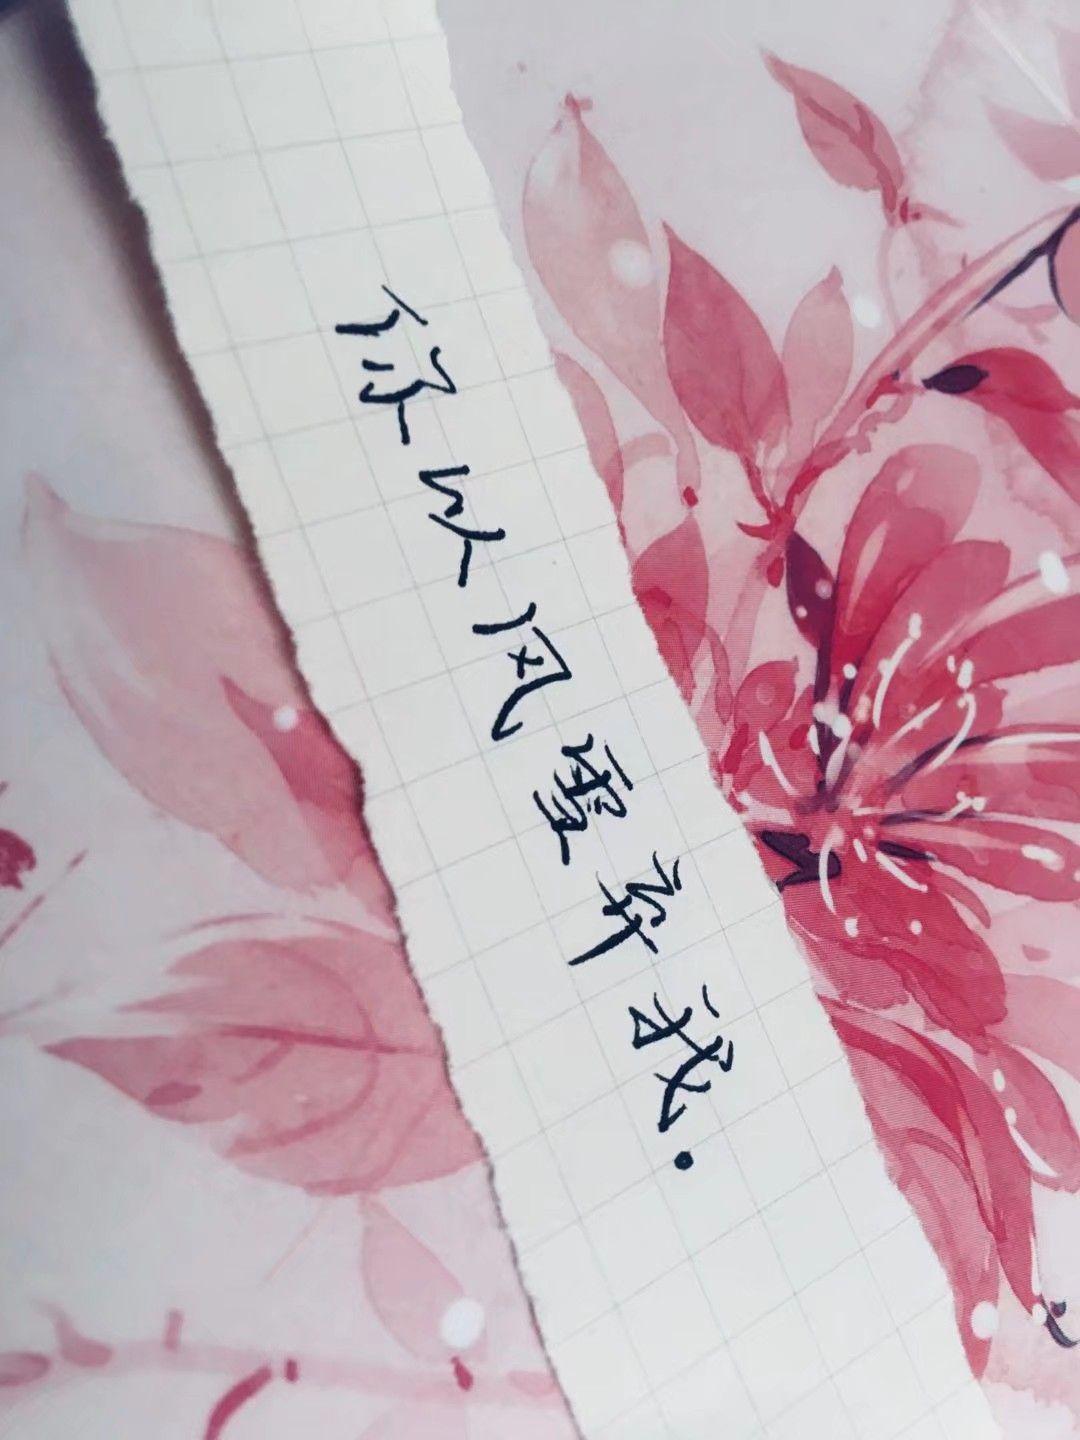 你以风雪弃我.